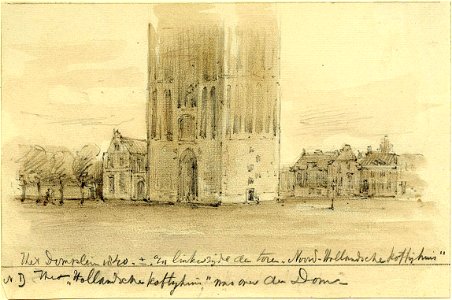 Het Domplein 1840. ± linkerzijde den toren „Noord-Hollandsche koffyhuis”
Het „Hollandsche koffyhuis” was over den Dom